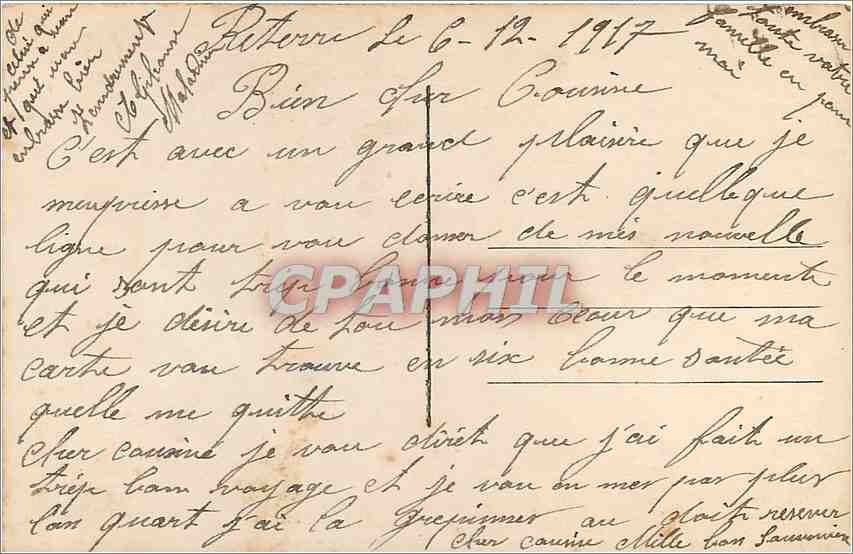 Reterre le 6-12-1917
Bien cher Cousine
C'est avec un grand plaisire que je
a vou ecrire c'est quelleque
ligne pour vou donner de mes nouvelle
qui sont trep bonne pour le momente
et je désire de tou mon Ceour que ma
carte vou trouve en six bonne santée
quelle me quitte
cher cousine je vou dirèt que j'ai fait un
trép bon voyage et je vou en mes pas plus
lon quart j'ai la au doit reserver
cher cousine Mille bon Souvenir
de
celui qui
pense a vous
et que vou
embrasse bien
Tendrement
embrasse
toute votre
famille en pour
moi
CPAPHIL